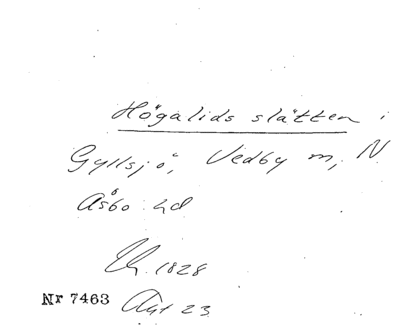 Högalids slätten i
Gyllsjö, Vedby m, N
Åsbo hd
1828
Nr 7463 Akt 23